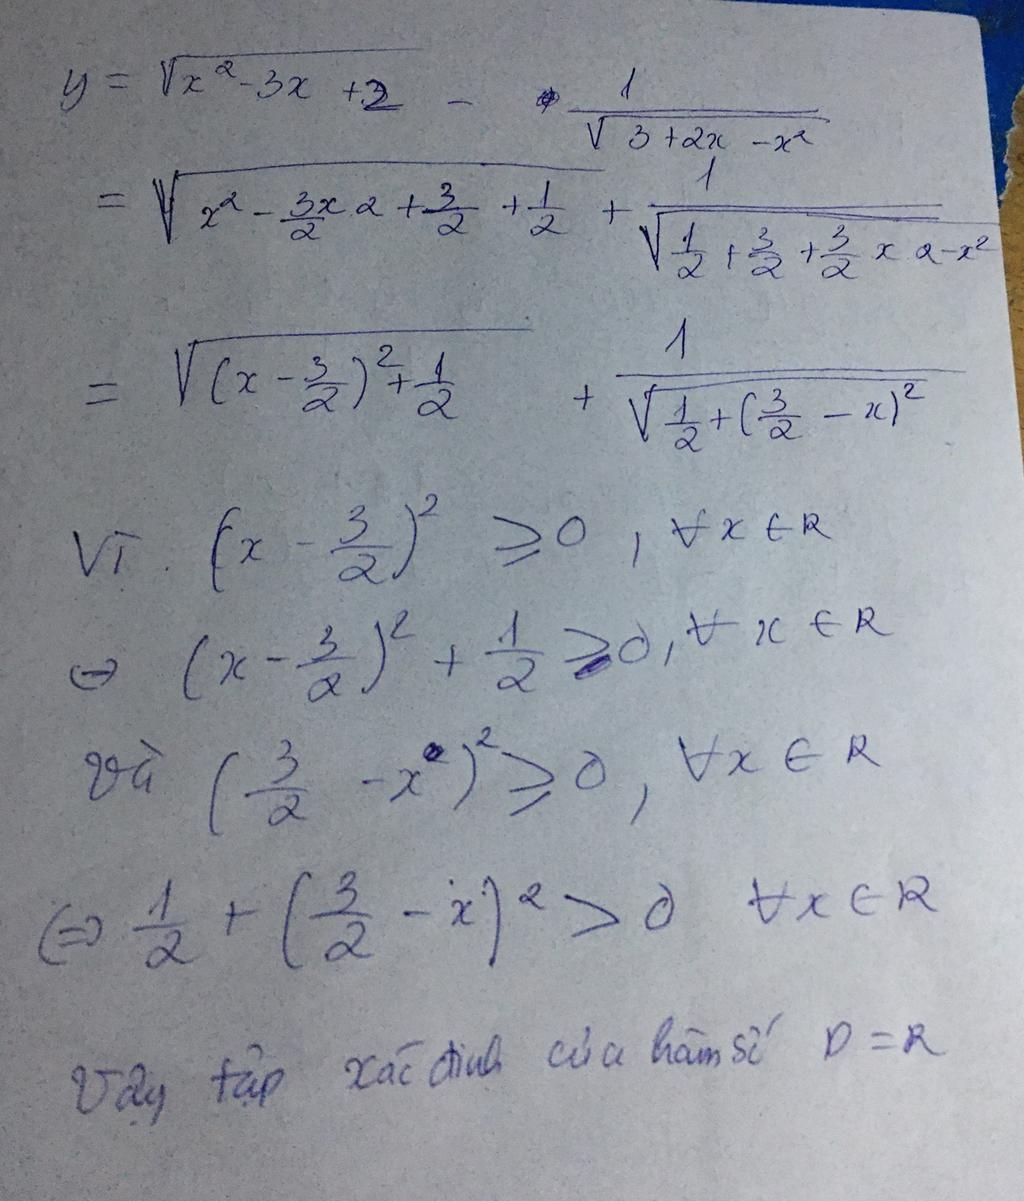 y = √(x² - 3x + 2) - 1/√(3 + 2x - x²)
= √(x² - 3/2 x 2 + 3/2 + 1/2) + 1/√(1/2 + 3/2 + 3/2 x 2 - x²)
= √((x - 3/2)² + 1/2) + 1/√(1/2 + (3/2 - x)²)
Vì (x - 3/2)² ≥ 0, ∀x ∈ R
⇔ (x - 3/2)² + 1/2 ≥ 0, ∀x ∈ R
Và (3/2 - x)² ≥ 0, ∀x ∈ R
⇔ 1/2 + (3/2 - x)² > 0 ∀x ∈ R
Vậy tập xác định của hàm số D = R